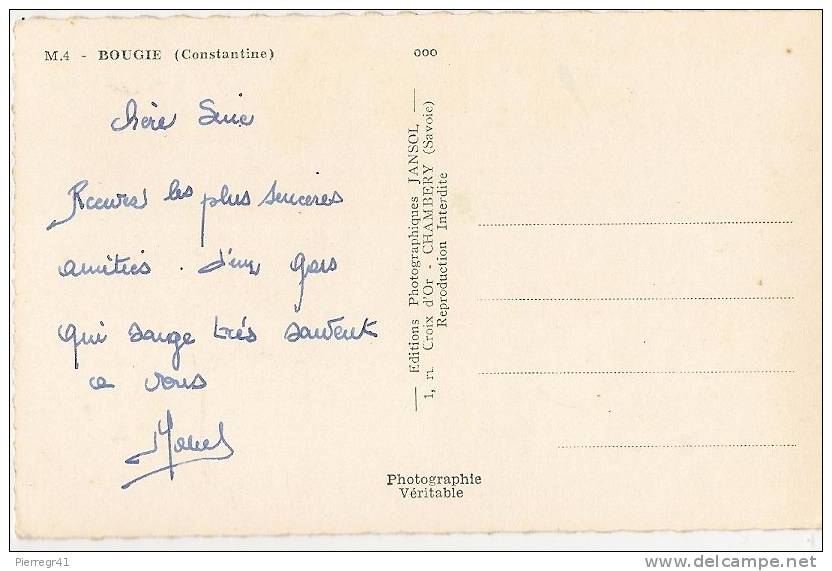 M.4 - BOUGIE (Constantine)
chère
Recevez les plus sinceres
amitiés. d'un gars
qui songe très souvent
a vous
ooo
Editions Photographiques JANSOL
1, r. Croix d'Or - CHAMBERY (Savoie)
Reproduction Interdite
Photographie
Véritable
Pierregr41
www.delcampe.net